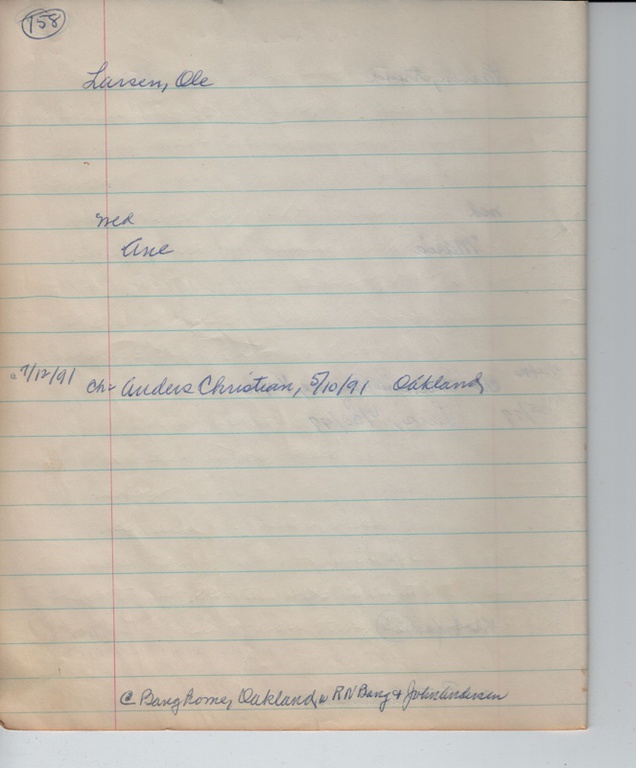 158
Larsen, Ole
med
Ane
a 7/12/91 ch- Anders Christian, 5/10/91 Oakland
@ Bang home, Oakland, w RN Bang + John Andersen